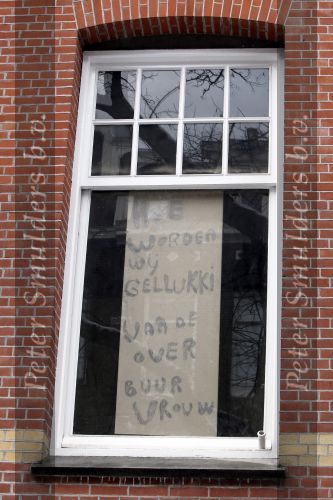 HOE
WORDEN
WIJ
GELLUKKI
VAR DE
OVER
BUUR
VROUW
Peter Smulders b.v.
Peter Smulders b.v.